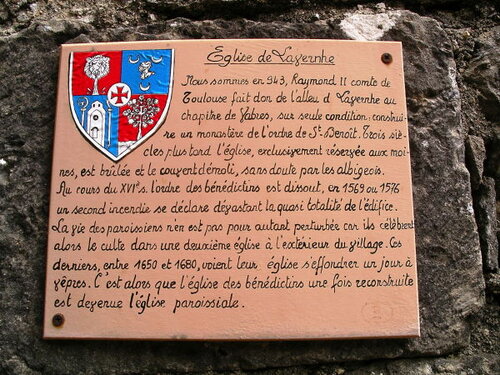 Eglise de Lavernhe
Nous sommes en 943, Raymond II comte de
Toulouse fait don de l'alleu d'Lavernhe au
chapitre de Vabres, sur seule condition, construi-
re un monastère de l'ordre de St-Benoît. Trois siè-
cles plus tard l'église, exclusivement réservée aux moi-
nes, est brûlée et le couvent démoli, sans doute par les albigeois.
Au cours du XVIe s. l'ordre des bénédictins est dissout, en 1569 ou 1576
un second incendie se déclare dévastant la quasi totalité de l'édifice.
La vie des paroissiens n'en est pas pour autant perturbée car ils célèbrent
alors le culte dans une deuxième église à l'extérieur du village. Ces
derniers, entre 1650 et 1680, voient leur église s'effondrer un jour à
vêpres. C'est alors que l'église des bénédictins une fois reconstruite
est devenue l'église paroissiale.